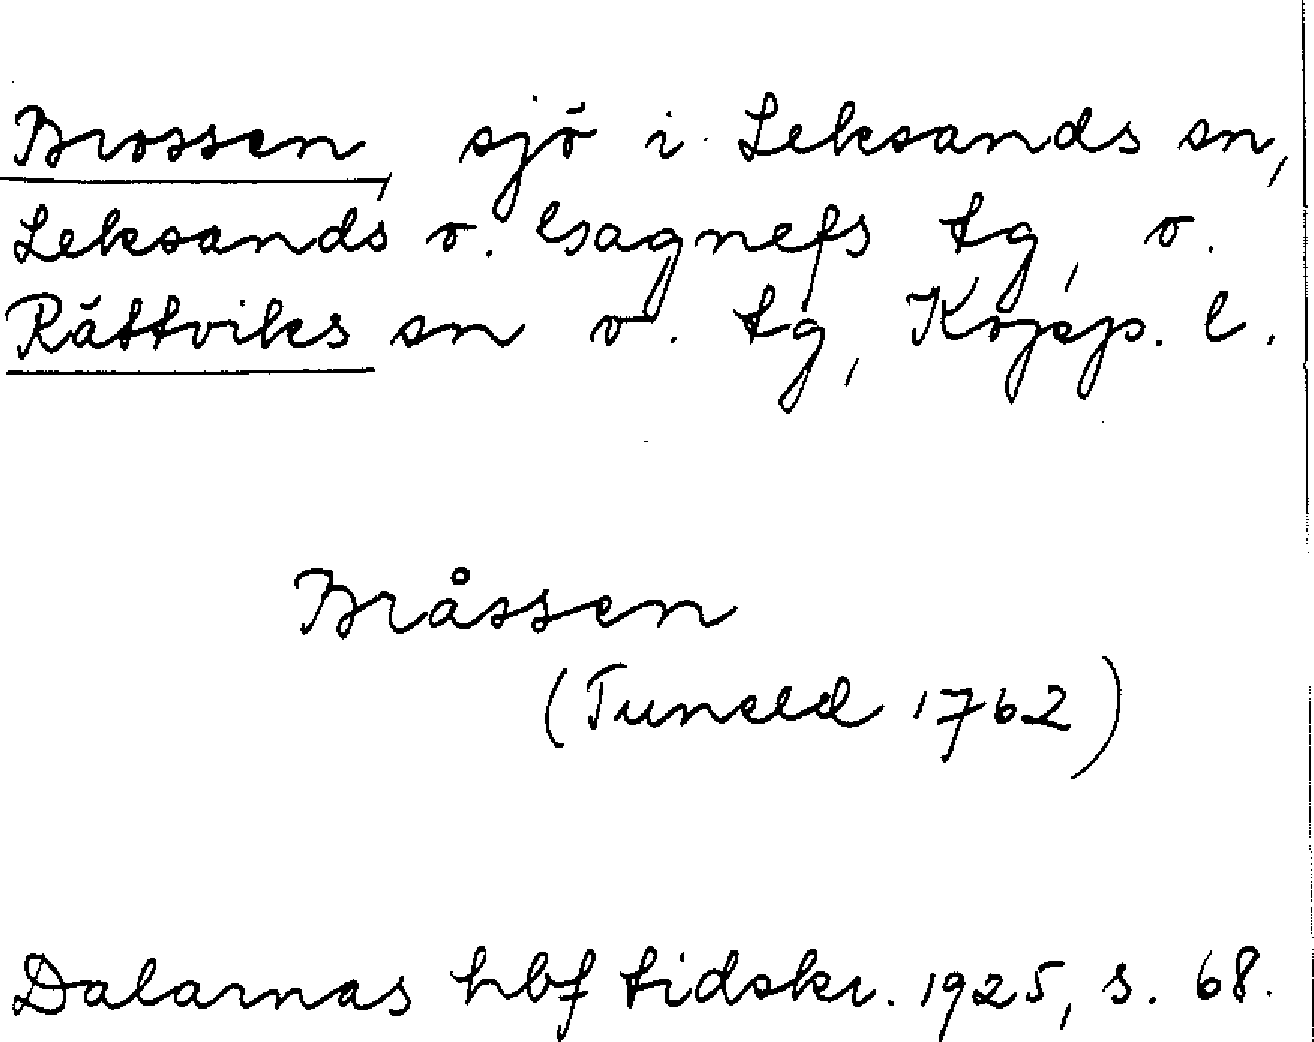 Brossen, sjö i Leksands sn,
Leksands o. Gagnefs tg, o.
Rättviks sn o. tg, Kopp. l.
Bråssen
(Tuneld 1762)
Dalarnas hbf tidskr. 1925, s. 68.